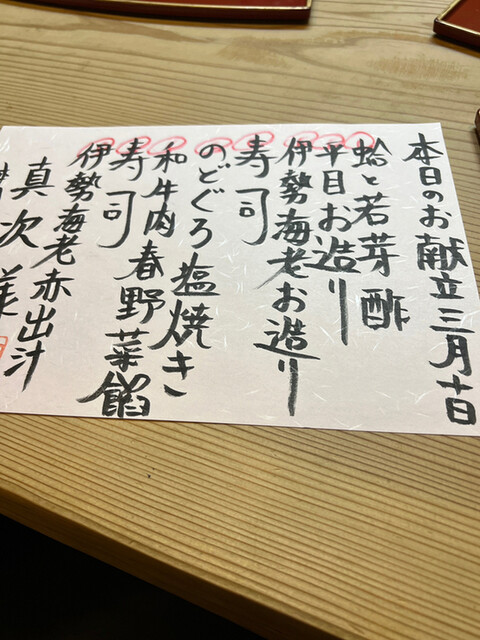 本日のお献立三月十日
蛤と若芽酢
平目お造り
伊勢海老お造り
寿司
のどぐろ塩焼き
和牛肉春野菜餡
寿司
伊勢海老赤出汁
真次